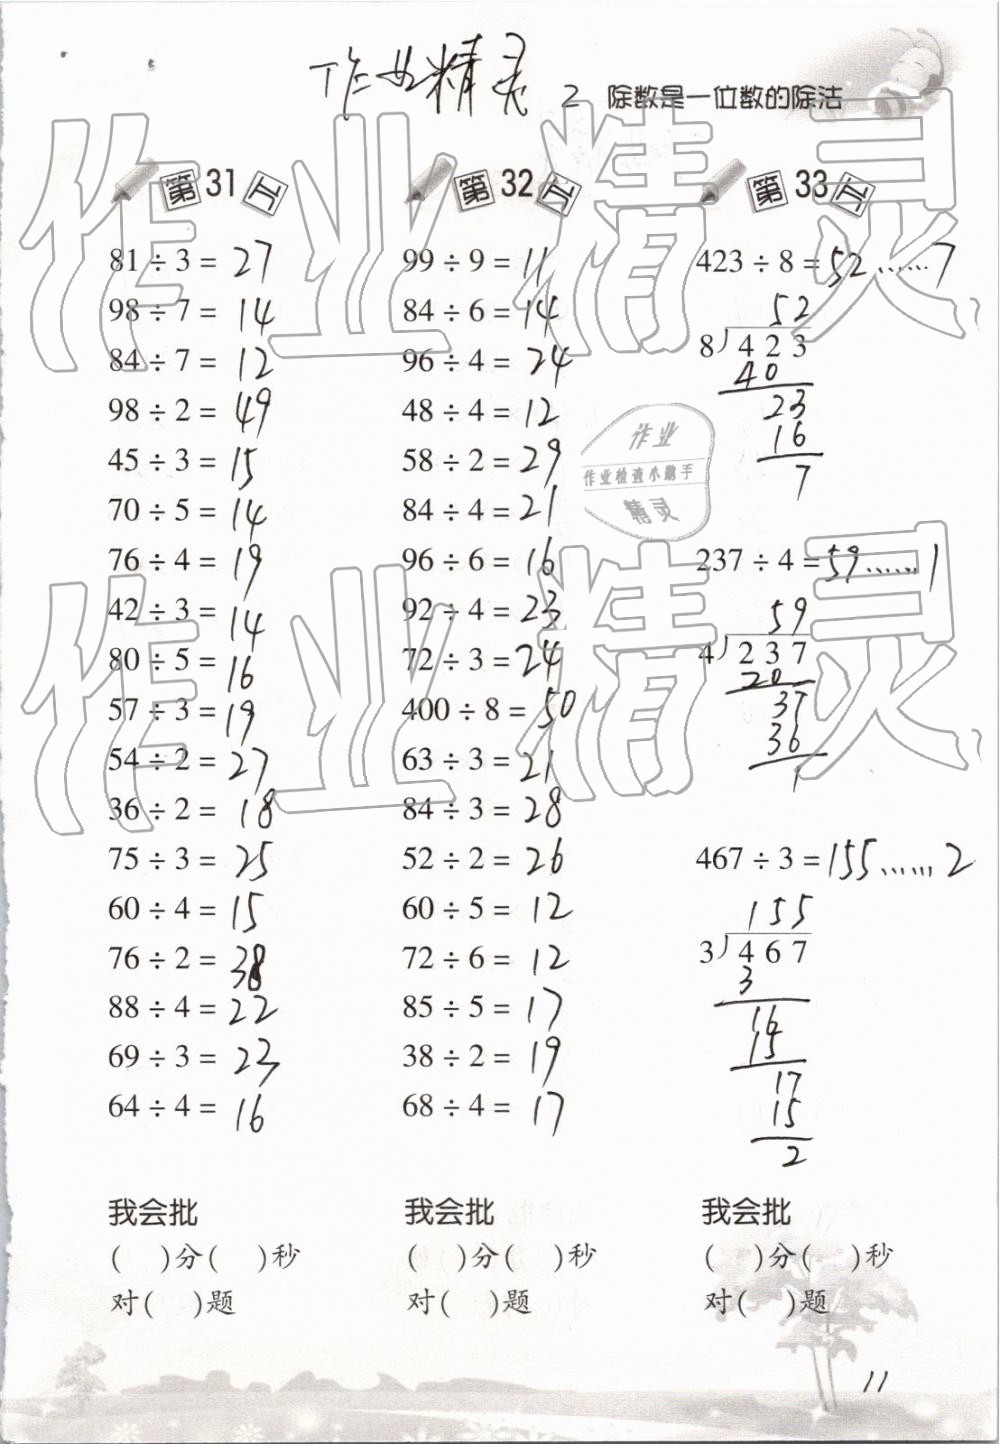 作业精灵
2 除数是一位数的除法
第31天
81÷3=27
98÷7=14
84÷7=12
98÷2=49
45÷3=15
70÷5=14
76÷4=19
42÷3=14
80÷5=16
57÷3=19
54÷2=27
36÷2=18
75÷3=25
60÷4=15
76÷2=38
88÷4=22
69÷3=23
64÷4=16
我会批
( )分( )秒
对( )题
第32天
99÷9=11
84÷6=14
96÷4=24
48÷4=12
58÷2=29
84÷4=21
96÷6=16
92÷4=23
72÷3=24
400÷8=50
63÷3=21
84÷3=28
52÷2=26
60÷5=12
72÷6=12
85÷5=17
38÷2=19
68÷4=17
我会批
( )分( )秒
对( )题
第33天
423÷8=52……7
52
8)423
40
23
16
7
237÷4=59……1
59
4)237
20
37
36
1
467÷3=155……2
155
3)467
3
16
15
17
15
2
我会批
( )分( )秒
对( )题
作业
作业检查小帮手
精灵
作业精灵
作业精灵
11